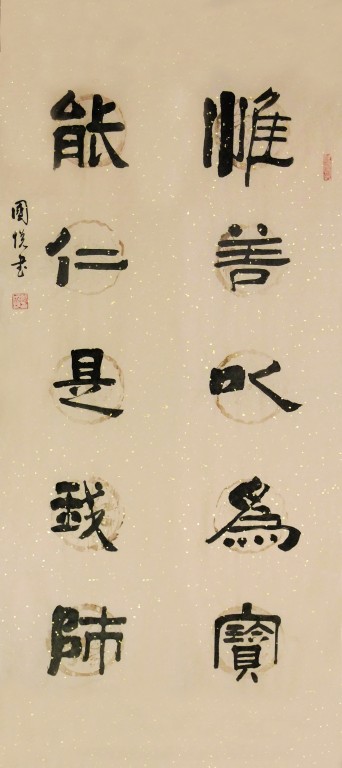 惟善以為寶
能仁是我師
國悅书